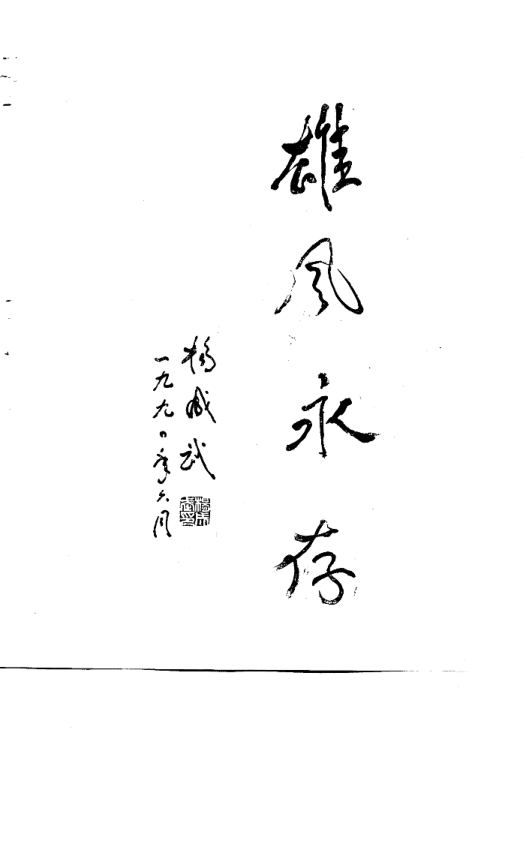 雄风永存
杨成武
一九九〇年六月